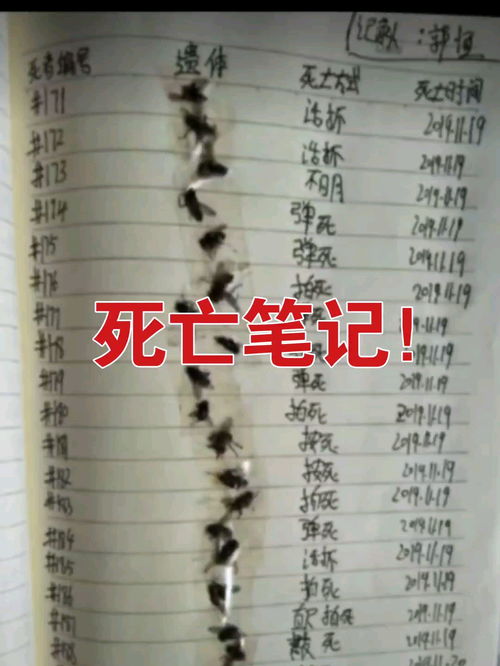 记录人：郭恒
死者编号 遗体 死亡方式 死亡时间
#171 活拆 2019.11.19
#172 活拆 2019.11.19
#173 不明 2019.11.19
#174 弹死 2019.11.19
#175 弹死 2019.11.19
#176 拍死 2019.11.19
死亡笔记！
#177 2019.11.19
#178 2019.11.19
#179 弹死 2019.11.19
#180 拍死 2019.11.19
#181 按死 2019.11.19
#182 按死 2019.11.19
#183 拍死 2019.11.19
#184 弹死 2019.11.19
#185 活拆 2019.11.19
#186 拍死 2019.11.19
#187 拍死 2019.11.19
#188 死 2019.11.20